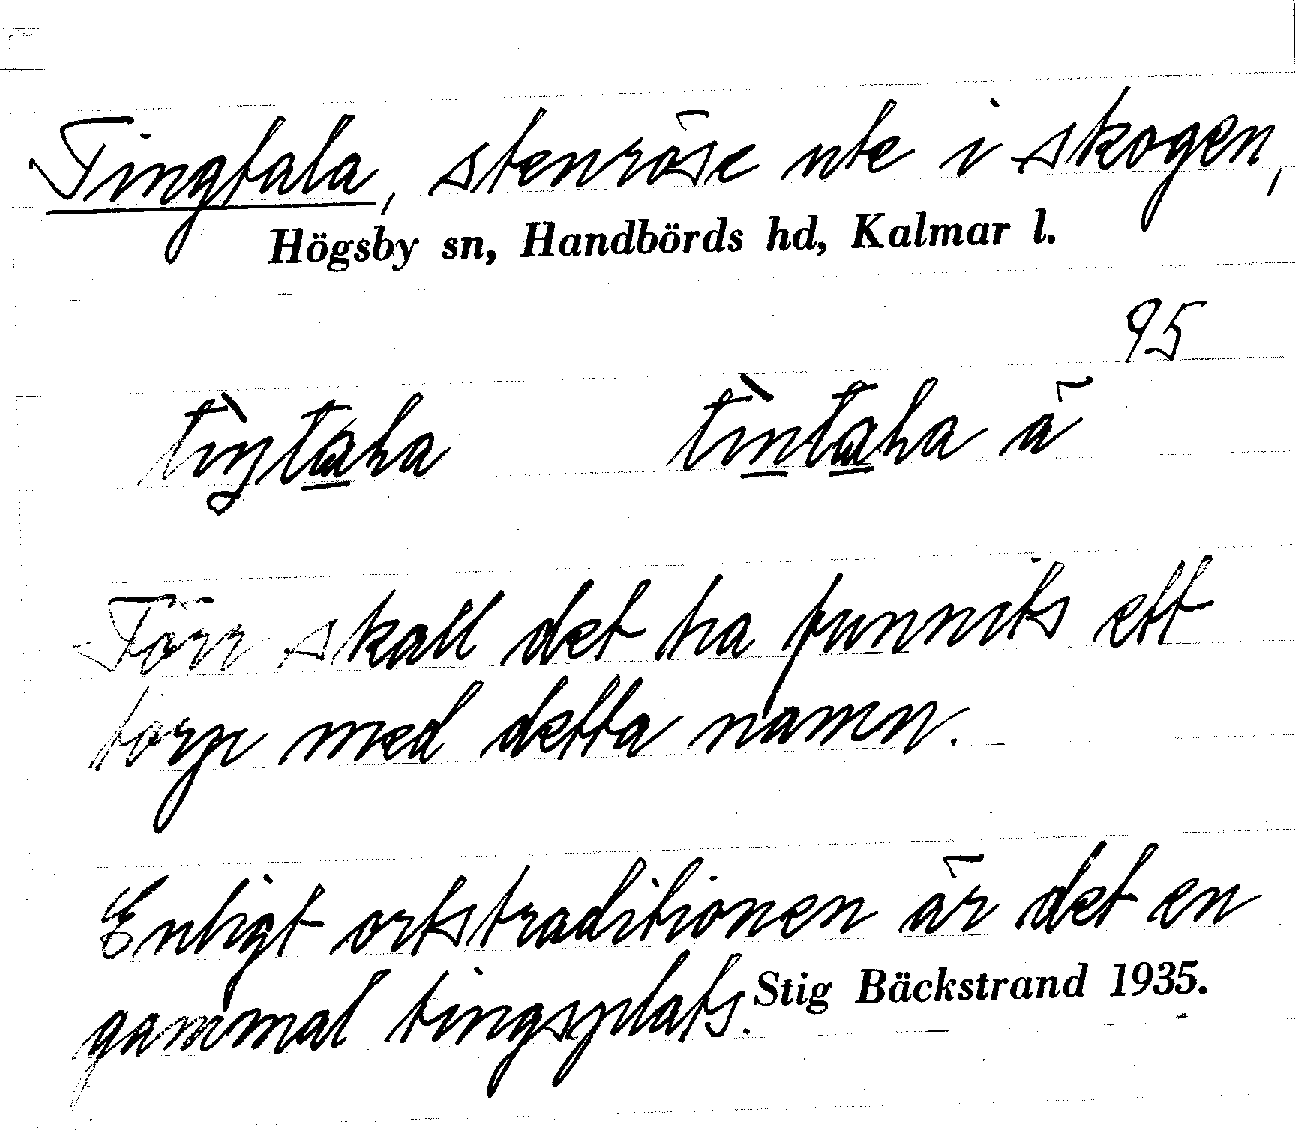 Tingtala, stenröse ute i skogen,
Högsby sn, Handbörds hd, Kalmar l.
95
Förr skall det ha funnits ett
torp med detta namn.
Enligt ortstraditionen är det en
gammal tingsplats.
Stig Bäckstrand 1935.